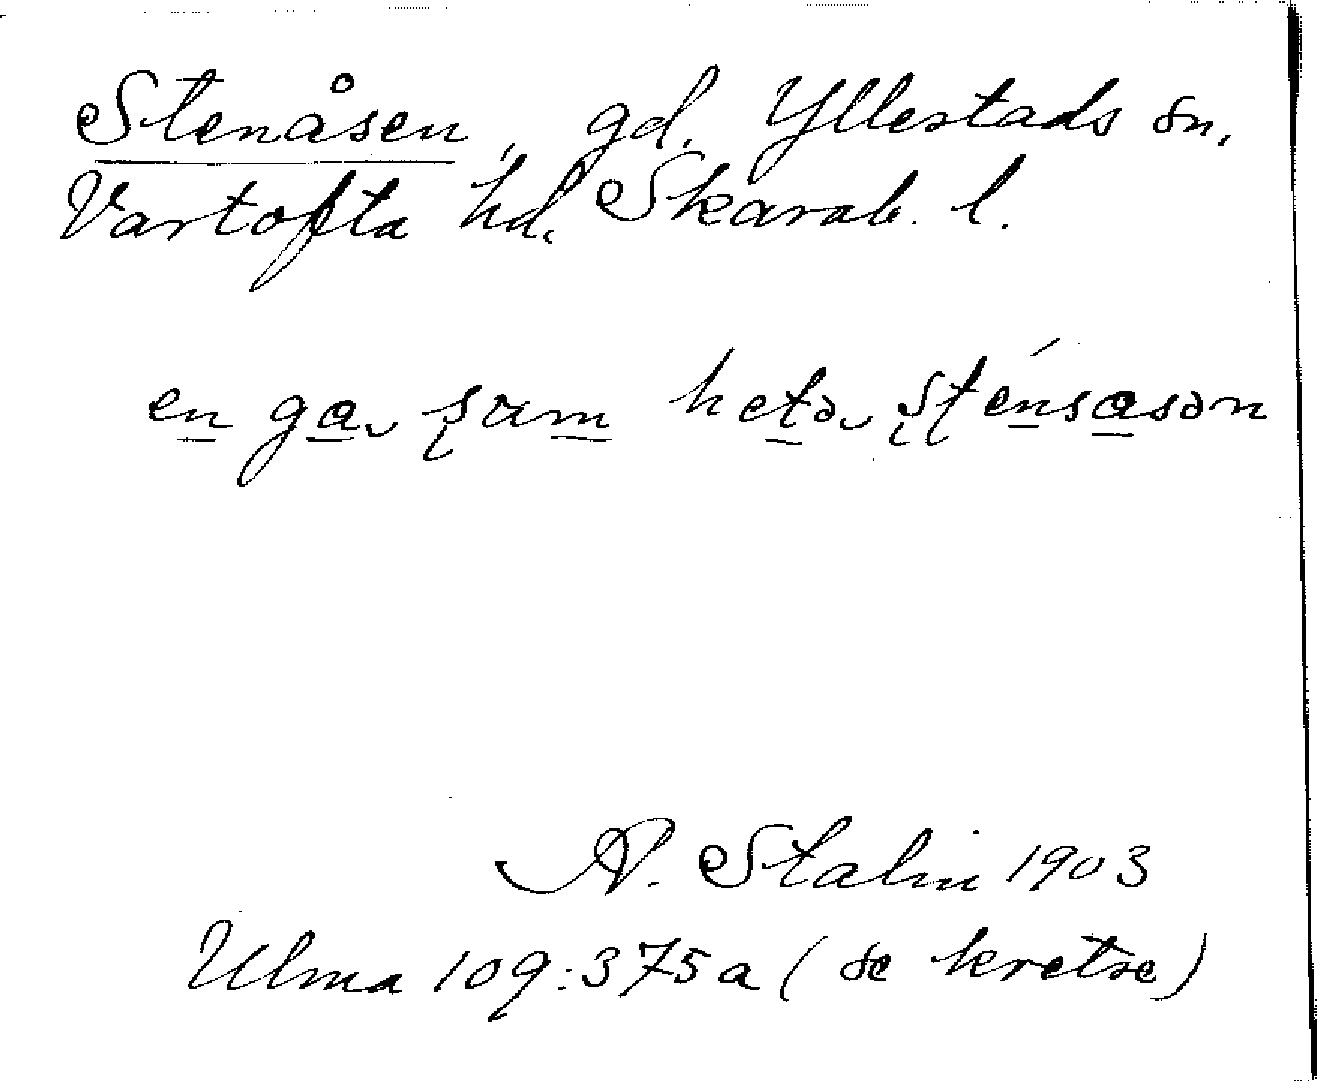 Stenåsen, gd. Yllestads sn.
Vartofta hd. Skarab. l.
en ga, sum hetə, sténsasən
Stalin 1903
Ulma 109:375a (se kretse)